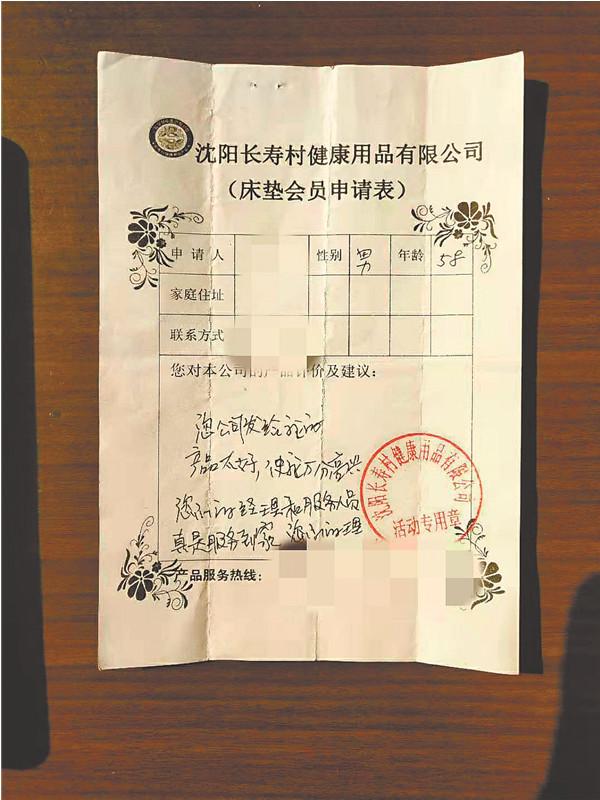 沈阳长寿村健康用品有限公司
（床垫会员申请表）
申请人 性别 男 年龄 58
家庭住址
联系方式
您对本公司的产品评价及建议：
您公司发给我的
产品太好，使我万分高兴
您们的经理和服务人员
真是服务到家 您们的经理
沈阳长寿村健康用品有限公司
活动专用章
产品服务热线：